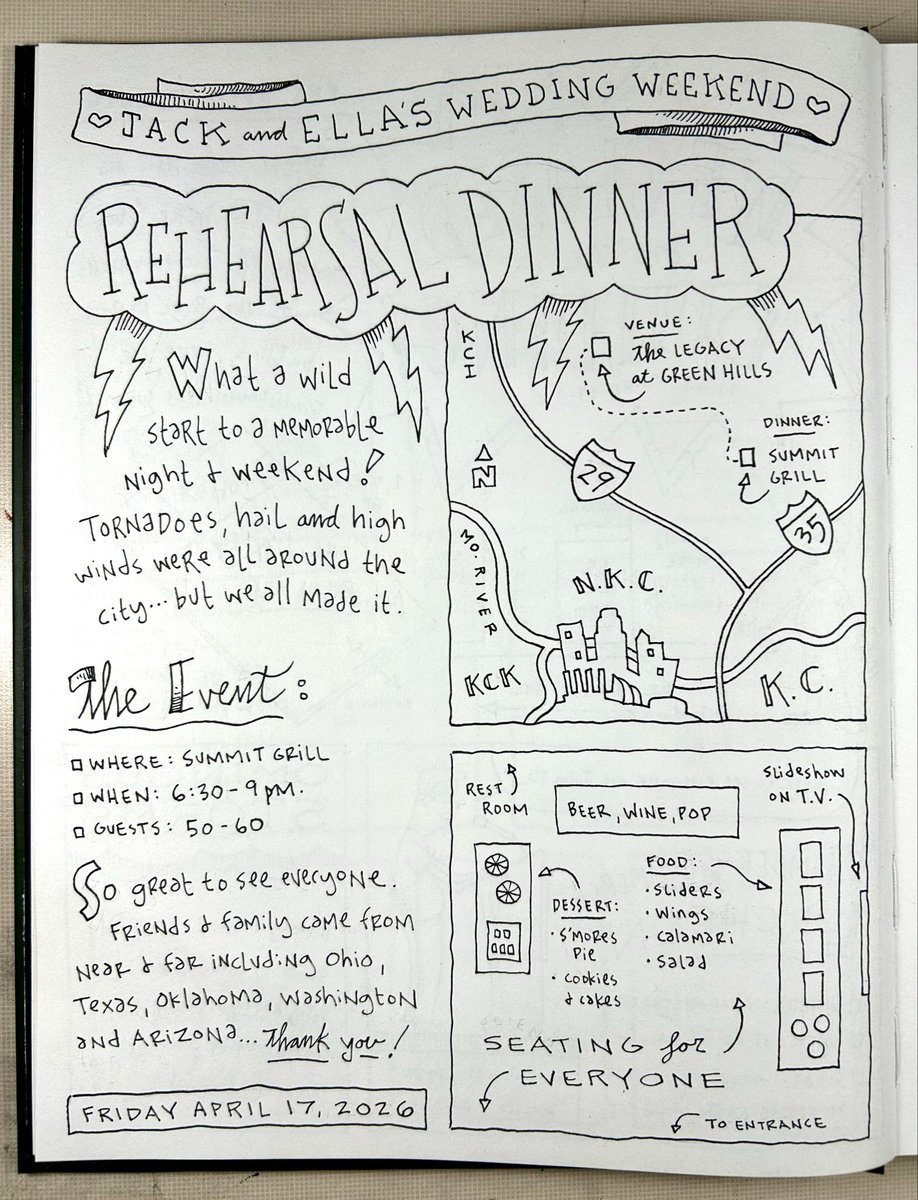 JACK and ELLA'S WEDDING WEEKEND
REHEARSAL DINNER
What a wild
start to a memorable
night & weekend!
Tornadoes, hail and high
winds were all around the
city... but we all made it.
The Event:
WHERE: SUMMIT GRILL
WHEN: 6:30 - 9 PM.
GUESTS: 50 - 60
So great to see everyone.
Friends & family came from
near & far including Ohio,
Texas, Oklahoma, Washington
and Arizona... Thank you!
FRIDAY APRIL 17, 2026
KCI
VENUE:
The LEGACY
at GREEN HILLS
DINNER:
SUMMIT
GRILL
N
29
35
MO. RIVER
N.K.C.
KCK
K.C.
REST
ROOM
BEER, WINE, POP
Slideshow
ON T.V.
DESSERT:
• S'mores
Pie
• Cookies
& cakes
FOOD:
• Sliders
• Wings
• Calamari
• Salad
SEATING for
EVERYONE
TO ENTRANCE